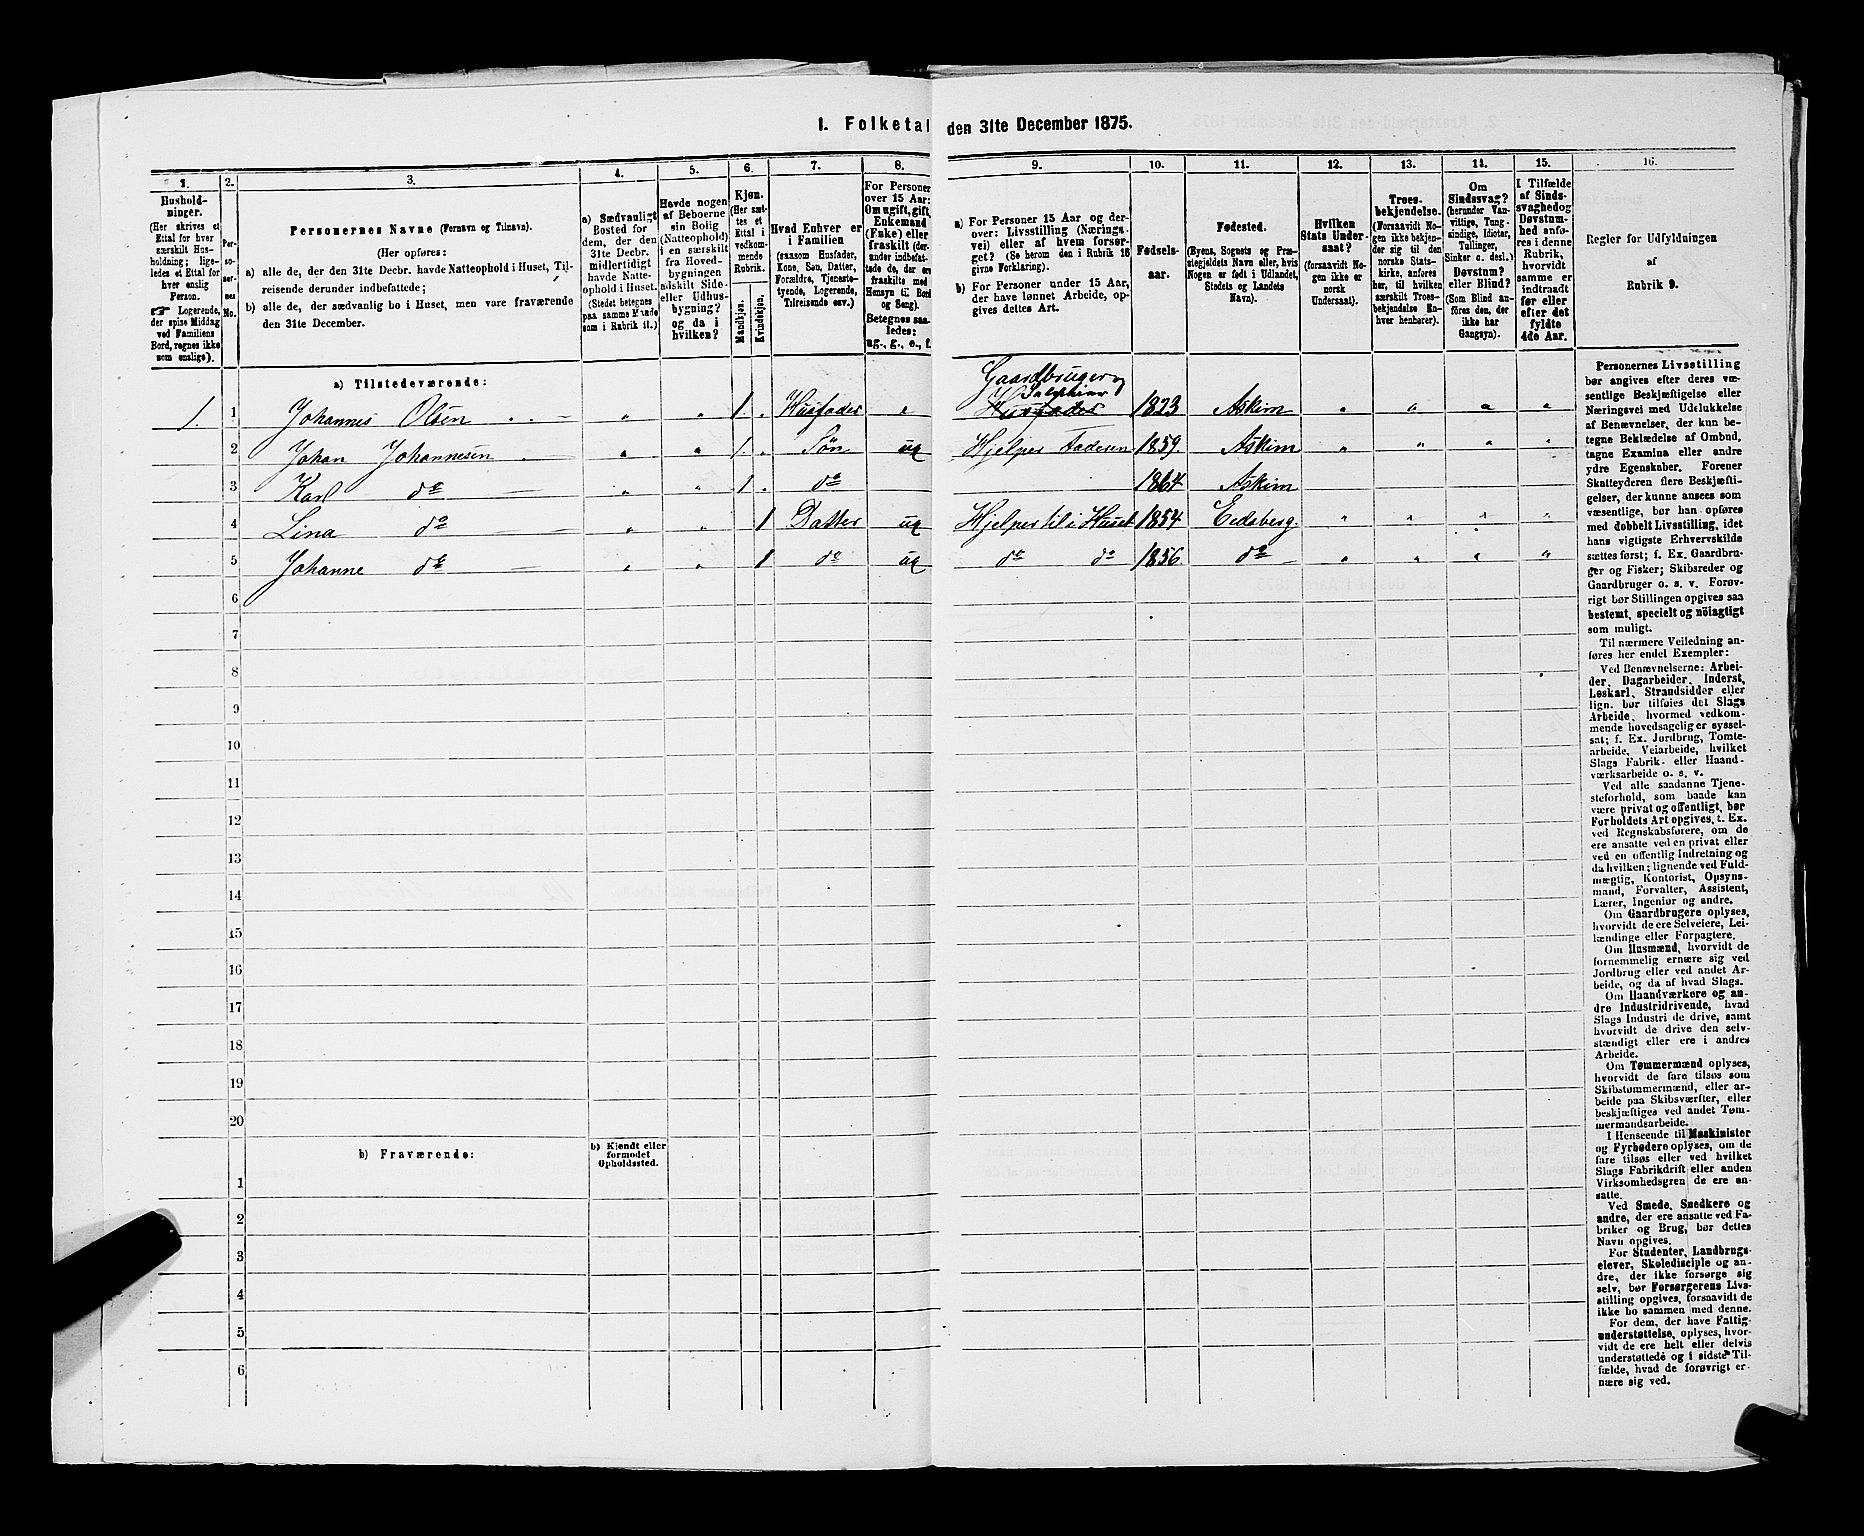 1. Folketal den 31te December 1875.
1.
Hushold-
ninger.
(Her skrives et
Ettal for hver
særskilt Hus-
holdning; lige-
ledes et Ettal for
hver enslig
Person.
☛ Logerende,
der spise Middag
ved Familiens
Bord, regnes ikke
som enslige).
2.
Per-
so-
ner-
nes
No.
3.
Personernes Navne (Fornavn og Tilnavn).
(Her opføres:
a) alle de, der den 31te Decbr. havde Natteophold i Huset, Til-
reisende derunder indbefattede;
b) alle de, der sædvanlig bo i Huset, men vare fraværende
den 31te December.
4.
a) Sædvanligt
Bosted for
dem, der den
31te Decbr.
midlertidigt
havde Natte-
ophold i Huset.
(Stedet betegnes
paa samme Maade
som i Rubrik 11.)
5.
Havde nogen
af Beboerne
sin Bolig
(Natteophold)
i en særskilt
fra Hoved-
bygningen
adskilt Side-
eller Udhus-
bygning?
og da i
hvilken?
6.
Kjøn.
(Her sæt-
tes et
Ettal i
vedkom-
mende
Rubrik.
Mandkjøn.
Kvindekjøn.
7.
Hvad Enhver er
i Familien
(saasom Husfader,
Kone, Søn, Datter,
Forældre, Tjeneste-
tyende, Logerende,
Tilreisende osv.)
8.
For Personer
over 15 Aar:
Om ugift, gift,
Enkemand
(Enke) eller
fraskilt (der-
under indbefat-
tede de, der ere
fraskilte med
Hensyn til Bord
og Seng).
Betegnes saa-
ledes:
ug., g., e., f.
9.
a) For Personer 15 Aar og der-
over: Livsstilling (Nærings-
vei) eller af hvem forsør-
get? (Se herom den i Rubrik 16
givne Forklaring).
b) For Personer under 15 Aar,
der have lønnet Arbeide, op-
gives dettes Art.
10.
Fødsels-
aar.
11.
Fødested.
(Byens, Sognets og Præ-
stegjeldets Navn eller, hvis
Nogen er født i Udlandet,
Stedets og Landets
Navn).
12.
Hvilken
Stats Under-
saat?
(forsaavidt No-
gen ikke er
norsk
Undersaat).
13.
Troes-
bekjendelse.
(Forsaavidt No-
gen ikke bekjen-
der sig til den
norske Stats-
kirke, anføres
her, til hvilken
særskilt Troes-
bekjendelse En-
hver henhører).
14.
Om
Sindssvag?
(herunder Van-
vittige, Tung-
sindige, Idioter,
Tullinger,
Sinker o. desl.)
Døvstum?
eller Blind?
(Som Blind an-
føres den, der
ikke har
Gangsyn).
15.
I Tilfælde
af Sinds-
svaghed og
Døvstum-
hed anfø-
res i denne
Rubrik,
hvorvidt
samme er
indtraadt
før eller
efter det
fyldte
4de Aar.
16.
Regler for Udfyldningen
af
Rubrik 9.
a) Tilstedeværende:
1. 1 Johannes Olsen „ „ 1. „ Husfader e Gaardbruger og Selveier Husfader 1823 Askim „ „ „ „
2 Johan Johannesen „ „ 1. „ Søn ug Hjelper Faderen 1859. Askim „ „ „ „
3 Karl do „ „ 1 „ do 1864 Askim
4 Lina do „ „ 1 Datter ug Hjelper til i Huset 1854 Eidsberg. „ „ „ „
5 Johanne do „ „ 1 do ug do do 1856. do „ „ „ „
6
7
8
9
10
11
12
13
14
15
16
17
18
19
20
b) Fraværende:
b) Kjendt eller
formodet
Opholdssted.
1
2
3
4
5
6
Personernes Livsstilling
bør angives efter deres væ-
sentlige Beskjæftigelse eller
Næringsvei med Udelukkelse
af Benævnelser, der kun be-
tegne Beklædelse af Ombud,
tagne Examina eller andre
ydre Egenskaber. Forener
Skatteyderen flere Beskjæfti-
gelser, der kunne ansees som
væsentlige, bør han opføres
med dobbelt Livsstilling, idet
hans vigtigste Erhvervskilde
sættes først; f. Ex. Gaardbru-
ger og Fisker; Skibsreder og
Gaardbruger o. s. v. Forøv-
rigt bør Stillingen opgives saa
bestemt, specielt og nöiagtigt
som muligt.
Til nærmere Veiledning an-
føres her endel Exempler:
Ved Benævnelserne: Arbei-
der, Dagarbeider, Inderst,
Løskarl, Strandsidder eller
lign. bør tilføies det Slags
Arbeide, hvormed vedkom-
mende hovedsagelig er syssel-
sat; f. Ex. Jordbrug, Tomte-
arbeide, Veiarbeide, hvilket
Slags Fabrik- eller Haand-
værksarbeide o. s. v.
Ved alle saadanne Tjene-
steforhold, som baade kan
være privat og offentligt, bør
Forholdets Art opgives, t. Ex.
ved Regnskabsførere, om de
ere ansatte ved en privat eller
ved en offentlig Indretning og
da hvilken; lignende ved Fuld-
mægtig, Kontorist, Opsyns-
mand, Forvalter, Assistent,
Lærer, Ingeniør og andre.
Om Gaardbrugere oplyses,
hvorvidt de ere Selveiere, Lei-
lændinge eller Forpagtere.
Om Husmænd, hvorvidt de
fornemmelig ernære sig ved
Jordbrug eller ved andet Ar-
beide, og da af hvad Slags.
Om Haandværkere og an-
dre Industridrivende, hvad
Slags Industri de drive, samt
hvorvidt de drive den selv-
stændigt eller ere i andres
Arbeide.
Om Tømmermænd oplyses,
hvorvidt de fare tilsøs som
Skibstømmermænd, eller ar-
beide paa Skibsværfter, eller
beskjæftiges ved andet Tøm-
mermandsarbeide.
I Henseende til Maskinister
og Fyrbødere oplyses, om de
fare tilsøs eller ved hvilket
Slags Fabrikdrift eller anden
Virksomhedsgren de ere an-
satte.
Ved Smede, Snedkere og
andre, der ere ansatte ved Fa-
briker og Brug, bør dettes
Navn opgives.
For Studenter, Landbrugs-
elever, Skoledisciple og an-
dre, der ikke forsørge sig
selv, bør Forsørgerens Livs-
stilling opgives, forsaavidt de
ikke bo sammen med denne.
For dem, der have Fattig-
understøttelse, oplyses, hvor-
vidt de ere helt eller delvis
understøttede og i sidste Til-
fælde, hvad de forøvrigt er-
nære sig ved.